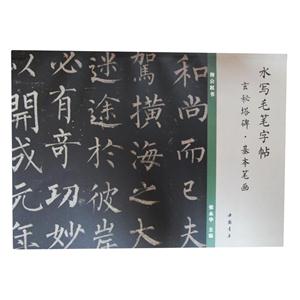 水写毛笔字帖
玄秘塔碑·基本笔画
中国书店
和尚而已夫
駕橫海之大
迷途於彼岸
必有奇功妙
以開成元年